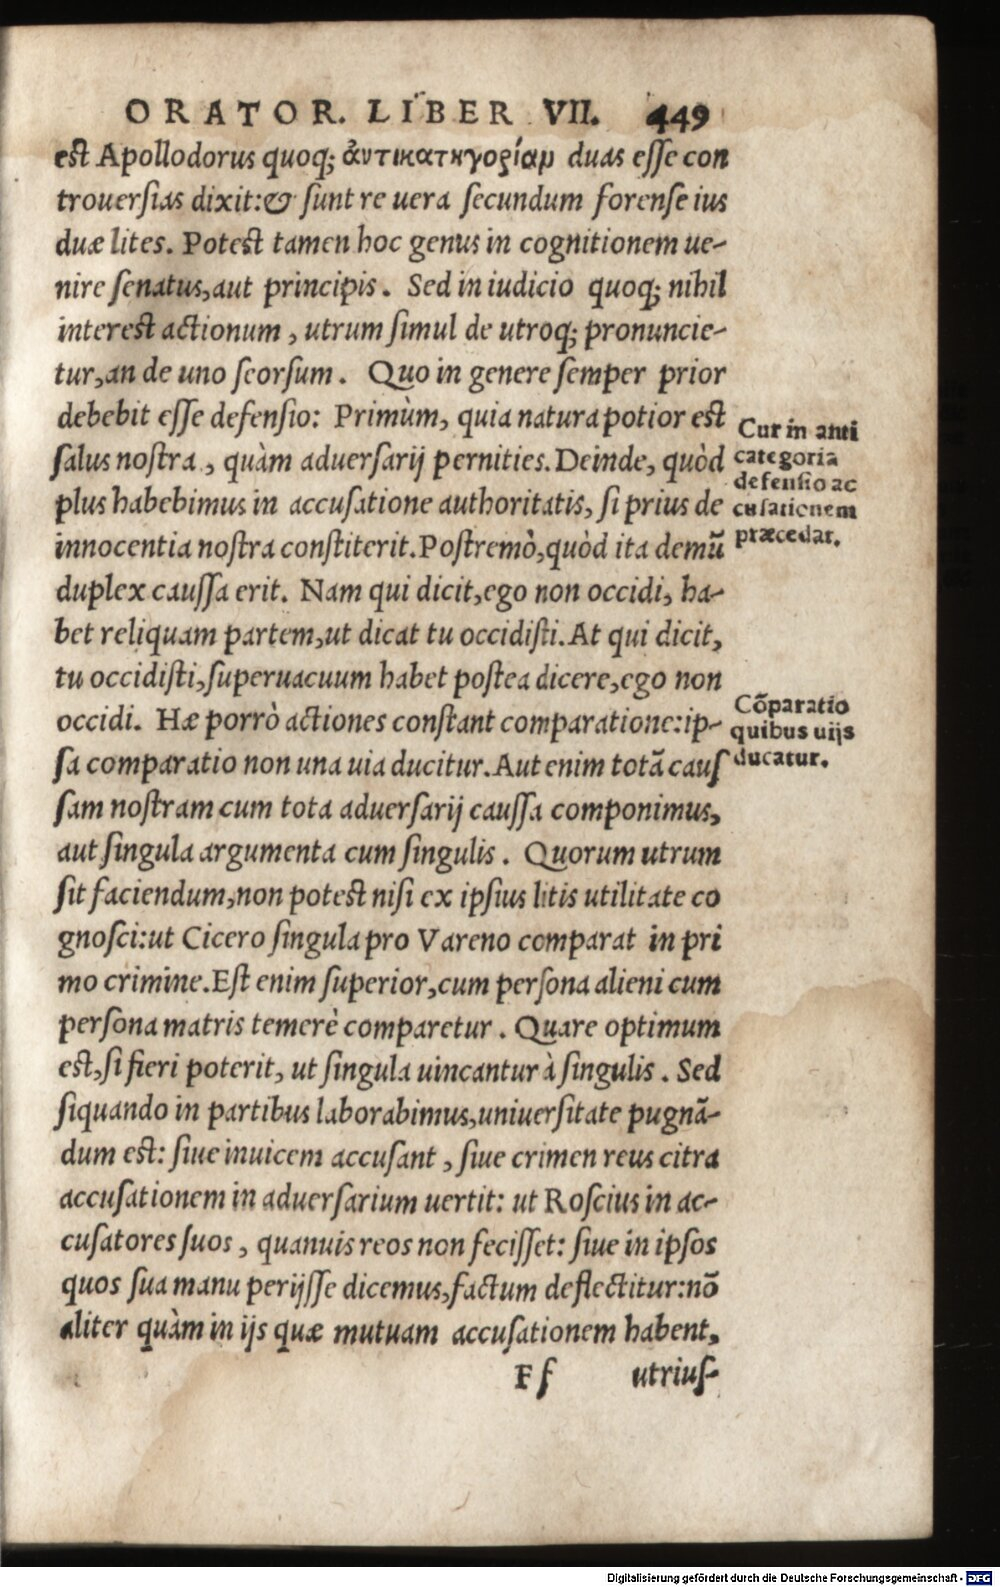 ORATOR. LIBER VII. 449
est Apollodorus quoq; ἀντικατηγορίαμ duas esse con
trouersias dixit:& sunt re uera secundum forense ius
duæ lites. Potest tamen hoc genus in cognitionem ue-
nire senatus,aut principis. Sed in iudicio quoq; nihil
interest actionum, utrum simul de utroq; pronuncie-
tur,an de uno seorsum. Quo in genere semper prior
debebit esse defensio: Primùm, quia natura potior est
salus nostra, quàm aduersarij pernities. Deinde, quòd
plus habebimus in accusatione authoritatis, si prius de
innocentia nostra constiterit. Postremò,quòd ita demũ
duplex caussa erit. Nam qui dicit,ego non occidi, ha-
bet reliquam partem,ut dicat tu occidisti. At qui dicit,
tu occidisti,superuacuum habet postea dicere,ego non
occidi. Hæ porrò actiones constant comparatione:ip-
sa comparatio non una uia ducitur. Aut enim totã caus
sam nostram cum tota aduersarij caussa componimus,
aut singula argumenta cum singulis. Quorum utrum
sit faciendum,non potest nisi ex ipsius litis utilitate co
gnosci:ut Cicero singula pro Vareno comparat in pri
mo crimine. Est enim superior,cum persona alieni cum
persona matris temerè comparetur. Quare optimum
est,si fieri poterit, ut singula uincantur à singulis. Sed
siquando in partibus laborabimus,uniuersitate pugnã-
dum est: siue inuicem accusant, siue crimen reus citra
accusationem in aduersarium uertit: ut Roscius in ac-
cusatores suos, quanuis reos non fecisset: siue in ipsos
quos sua manu perijsse dicemus,factum deflectitur:nõ
aliter quàm in ijs quæ mutuam accusationem habent,
Ff utrius-
Cur in anti
categoria
defensio ac
cusationem
præcedat.
Cõparatio
quibus uijs
ducatur.
Digitalisierung gefördert durch die Deutsche Forschungsgemeinschaft - DFG